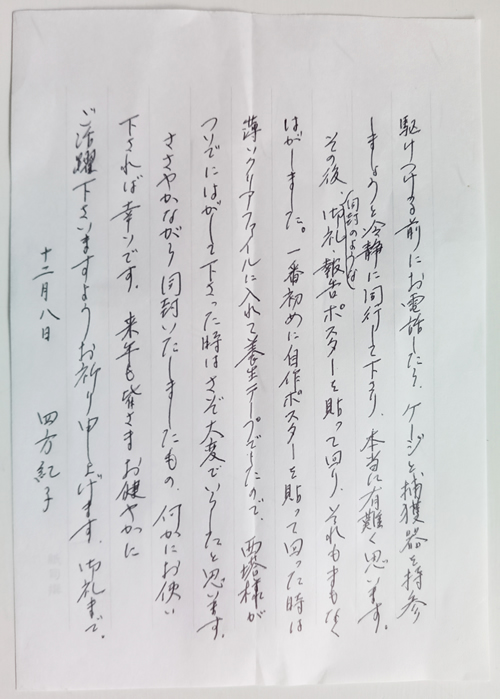 駆けつける前にお電話したら、ケージと捕獲器を持参
しましょうと冷静に同行して下さり、本当に有難く思います。
その後、同封のような御礼・報告ポスターを貼って回り、それもまもなく
はがしました。一番初めに自作ポスターを貼って回った時は
薄いクリアファイルに入れて養生テープでしたので、西塔様が
ついでにはがして下さった時はさぞ大変でいらしたと思います。
ささやかながら同封いたしましたもの、何かにお使い
下されば幸いです。来年も皆さまお健やかに
ご活躍下さいますようお祈り申し上げます。御礼まで。
十二月八日
四方紀子